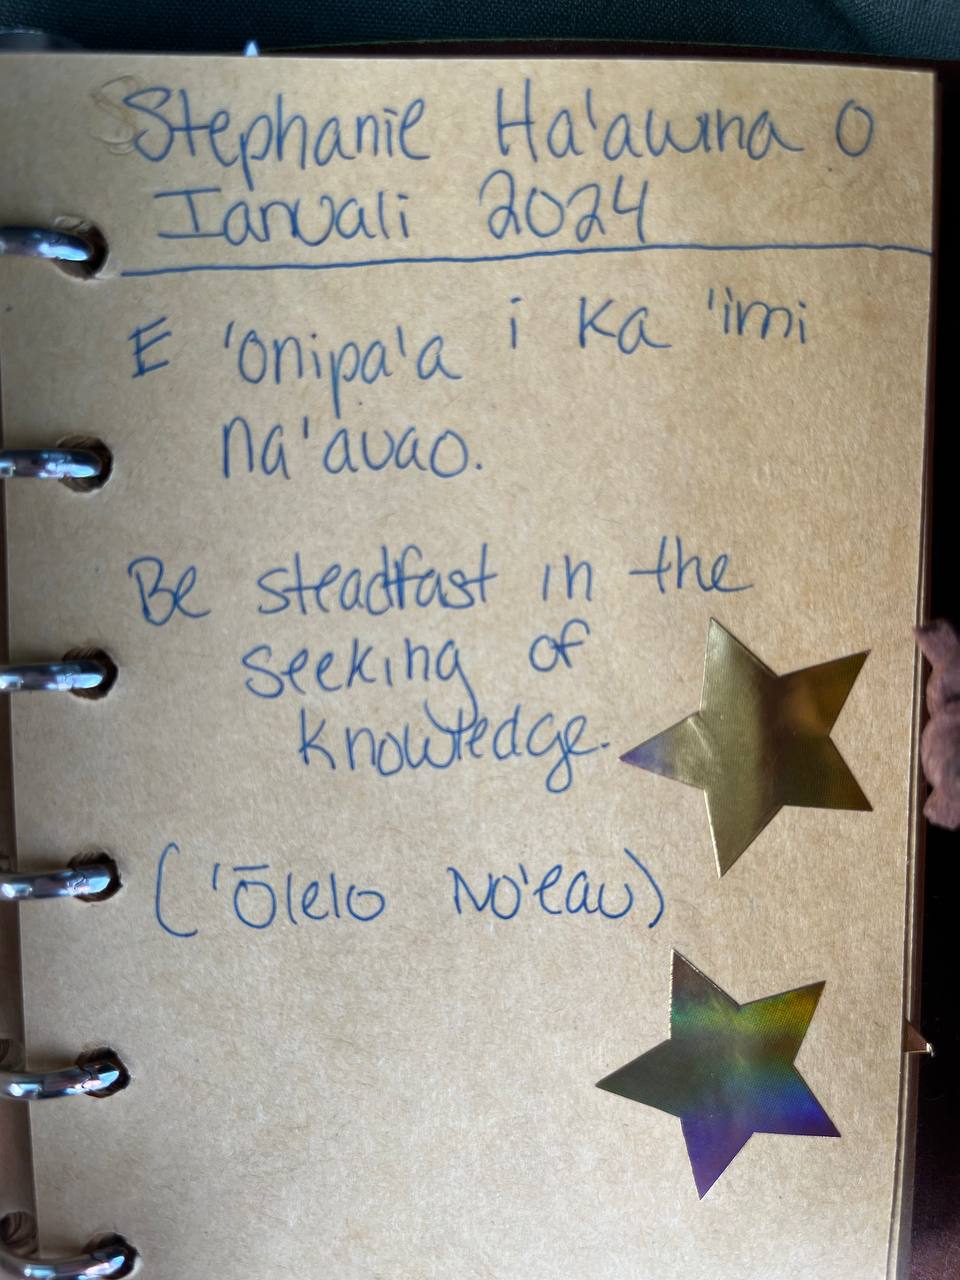 Stephanie Ha'awina O
Ianuali 2024
E 'onipa'a i ka 'imi
na'auao.
Be steadfast in the
seeking of
knowledge.
('Ōlelo No'eau)